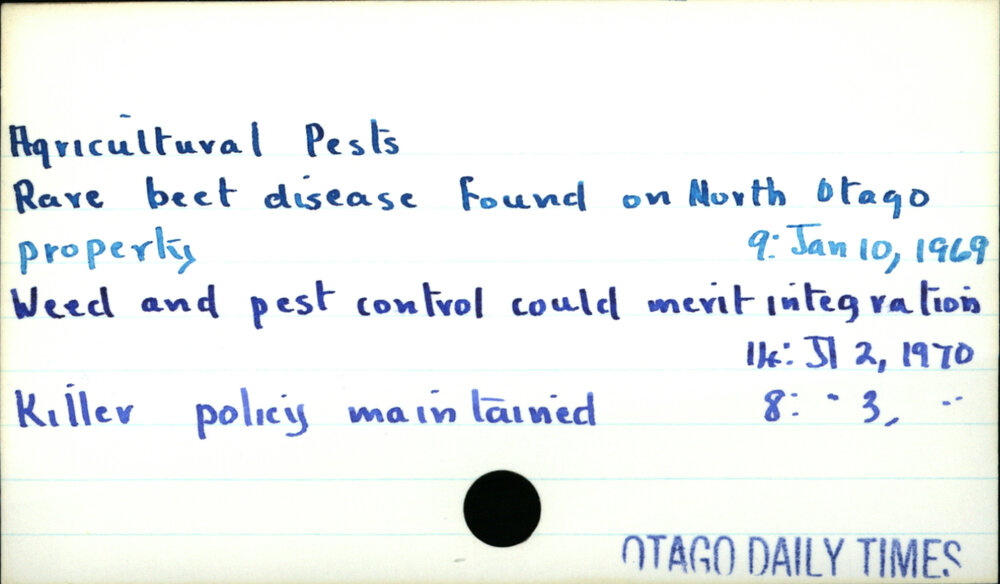 Agricultural Pests
Rare beet disease found on North Otago
property 9: Jan 10, 1969
Weed and pest control could merit integration
14: Jl 2, 1970
Killer policy maintained 8: " 3, "
OTAGO DAILY TIMES